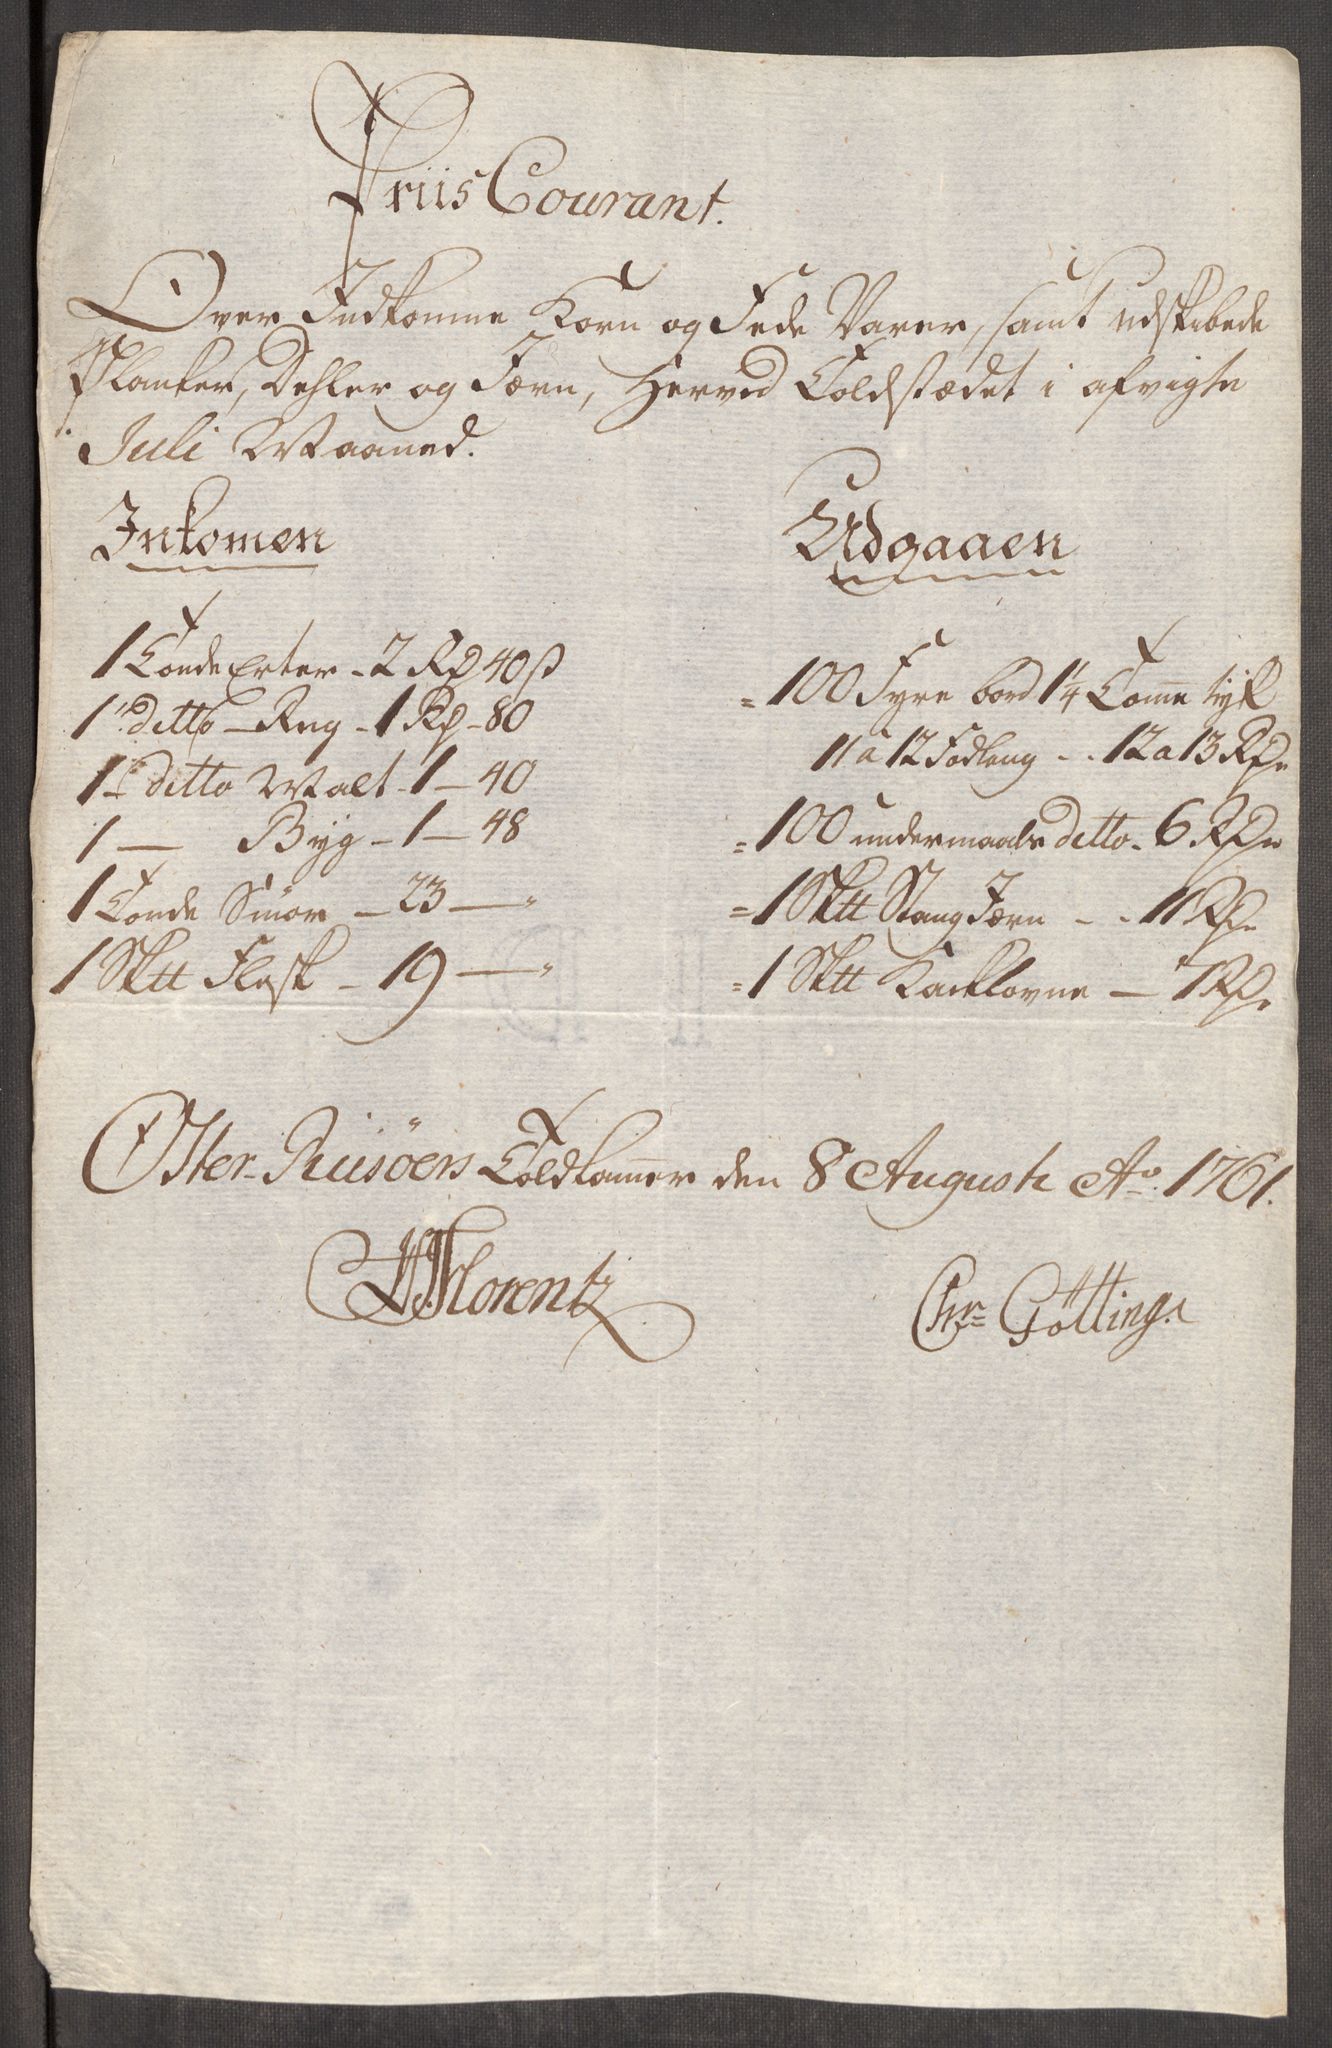 Priis Courant.
Over Indkomne Korn og Fede Varer, samt udskibede
Planker, Dehler og Jærn, Herved Toldstædet i afvigte
Juli Maaned.
Inkomen
1 Tonde Erter - 2 Rd 40 s
1 ditto - Rug - 1 Rd - 80
1 ditto Malt - 1 - 40
1 - Byg - 1 - 48
1 Tonde Smör - 23 - "
1 Sktt Flesk - 19 - "
Udgaaen
= 100 Fyre bord 1 1/4 Tomme tyk
11 a 12 Fod lang - - 12 a 13 Rdr
= 100 undermaals ditto - 6 Rdr
= 1 Sktt Stang Jærn - - 11 Rdr
= 1 Sktt Kacklovne - 7 Rdr
Öster-Riisöers Toldkammer den 8 Augusti Ao. 1761.
Florentz
Chr= Götting.